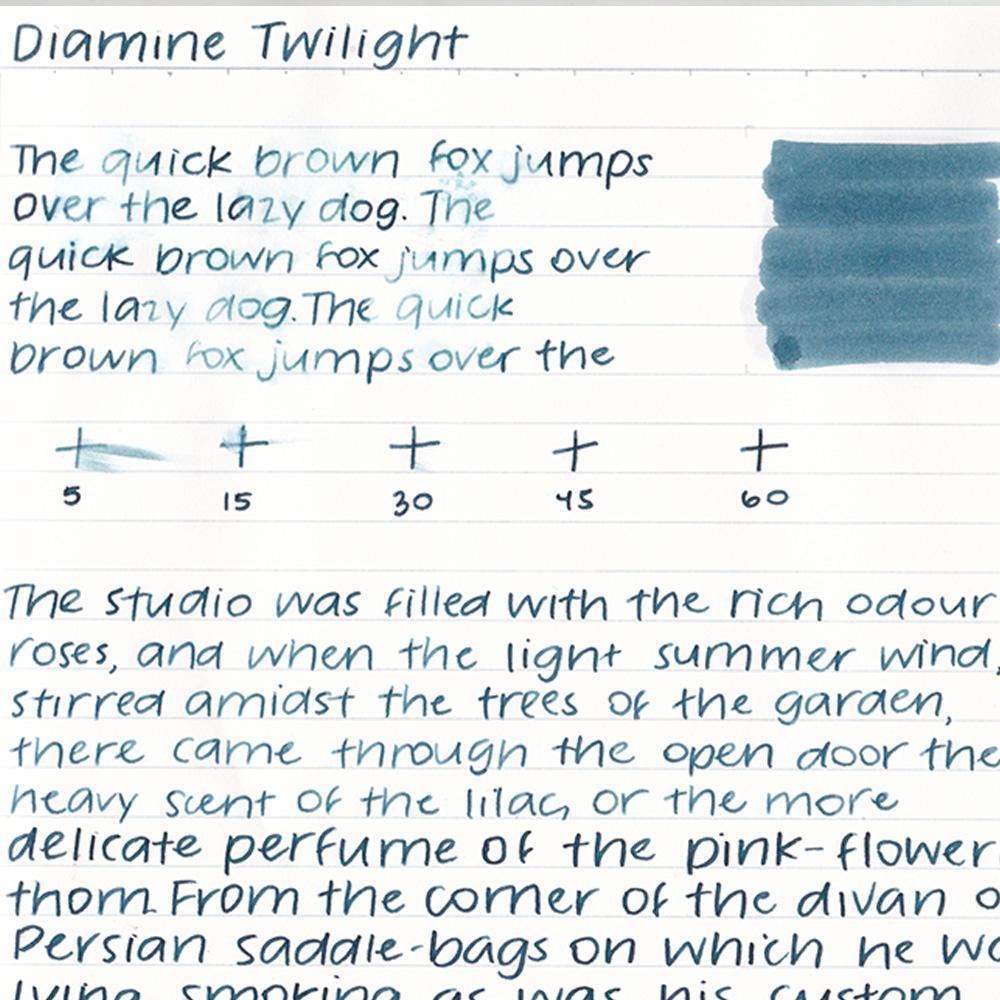 Diamine Twilight
The quick brown fox jumps
over the lazy dog. The
quick brown fox jumps over
the lazy dog. The quick
brown fox jumps over the
5 15 30 45 60
The studio was filled with the rich odour
roses, and when the light summer wind,
stirred amidst the trees of the garden,
there came through the open door the
heavy scent of the lilac, or the more
delicate perfume of the pink-flower
thorn. From the corner of the divan o
Persian saddle-bags on which he wa
lying, smoking as was his custom